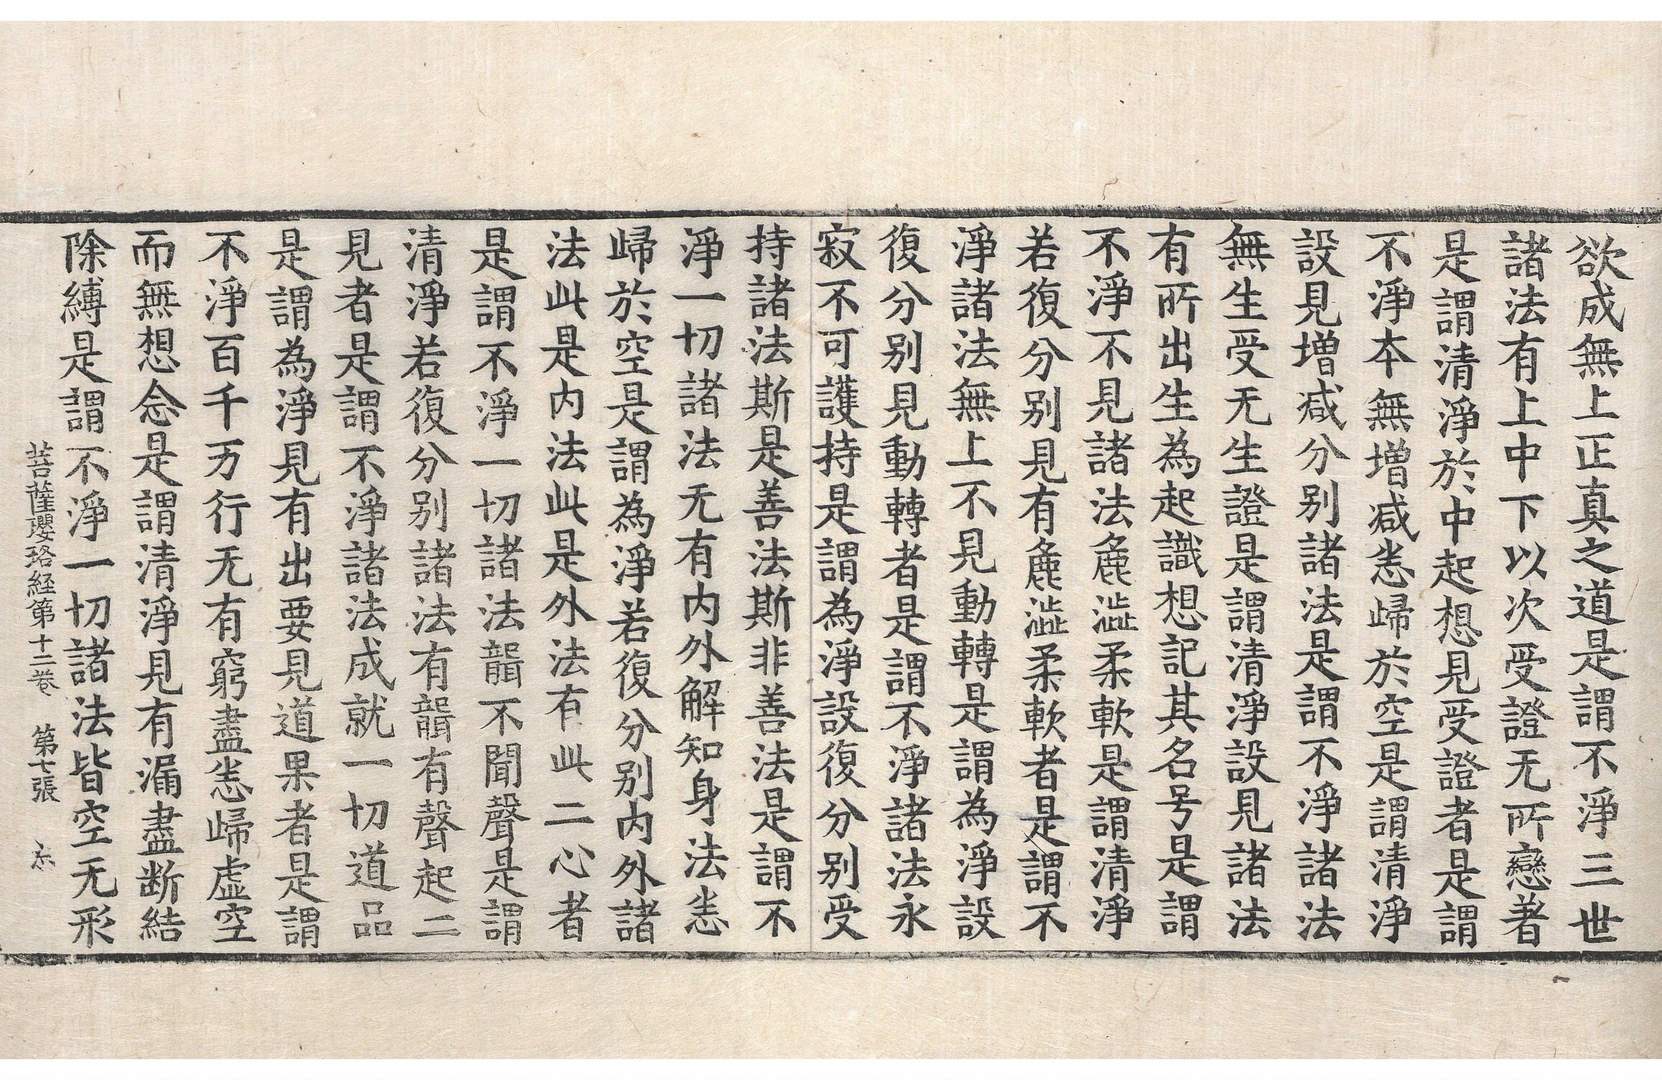 欲成無上正真之道是謂不淨三世
諸法有上中下以次受證无所戀著
是謂清淨於中起想見受證者是謂
不淨本無增减恙歸於空是謂清淨
設見增减分别諸法是謂不淨諸法
無生受无生證是謂清淨設見諸法
有所出生為起識想記其名号是謂
不淨不見諸法麁澁柔軟是謂清淨
若復分别見有麁澁柔軟者是謂不
淨諸法無上不見動轉是謂為淨設
復分别見動轉者是謂不淨諸法永
寂不可護持是謂為淨設復分别受
持諸法斯是善法斯非善法是謂不
淨一切諸法无有内外解知身法恙
歸於空是謂為淨若復分别内外諸
法此是内法此是外法有此二心者
是謂不淨一切諸法聾不聞聲是謂
清淨若復分别諸法有聾有聲起二
見者是謂不淨諸法成就一切道品
是謂為淨見有出要見道果者是謂
不淨百千万行无有窮盡恙歸虛空
而無想念是謂清淨見有漏盡断結
除縛是謂不淨一切諸法皆空无形
菩薩瓔珞経第十二卷 第七張